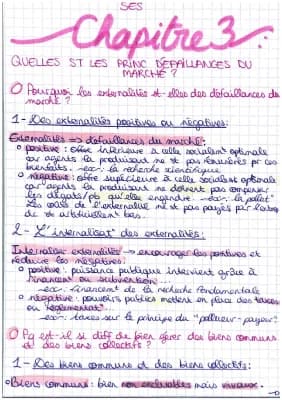 SES
Chapitre 3:
QUELLES ST LES PRINC DÉFAILLANCES DU
MARCHÉ ?
Pourquoi les externalités st-elles des défaillances du
marché ?
1 - Des externalités positives ou négatives:
Externalités => défaillances du marché:
positive: offre inférieure à celle socialemt optimale
car agents la produisant ne st pas rémunérés pr ces
bienfaits. -ex: la recherche scientifique
négative: offre supérieure à celle socialemt optimale
car agents la produisant ne doivent pas compenser
les dégats/pb qu'elle engendre. -ex: la pollut°
Les coûts de l'externalité ne st pas payés par
st artificiellemt bas.
2 - L'internalisat° des externalités:
Internalisat° externalités -> encourager les positives et
réduire les négatives:
positive: puissance publique intervient grâce à
financemt ou subvention...
-ex: financement de la recherche fondamentale
négative: pouvoirs publics mettent en place des taxes
ou réglementat°
-ex: taxes sur le principe du "pollueur-payeur"
Pq est-il si diff de bien gérer des biens communs
et des biens collectifs ?
1 - Des biens communs et des biens collectifs:
Biens communs: bien non excluables mais rivaux.